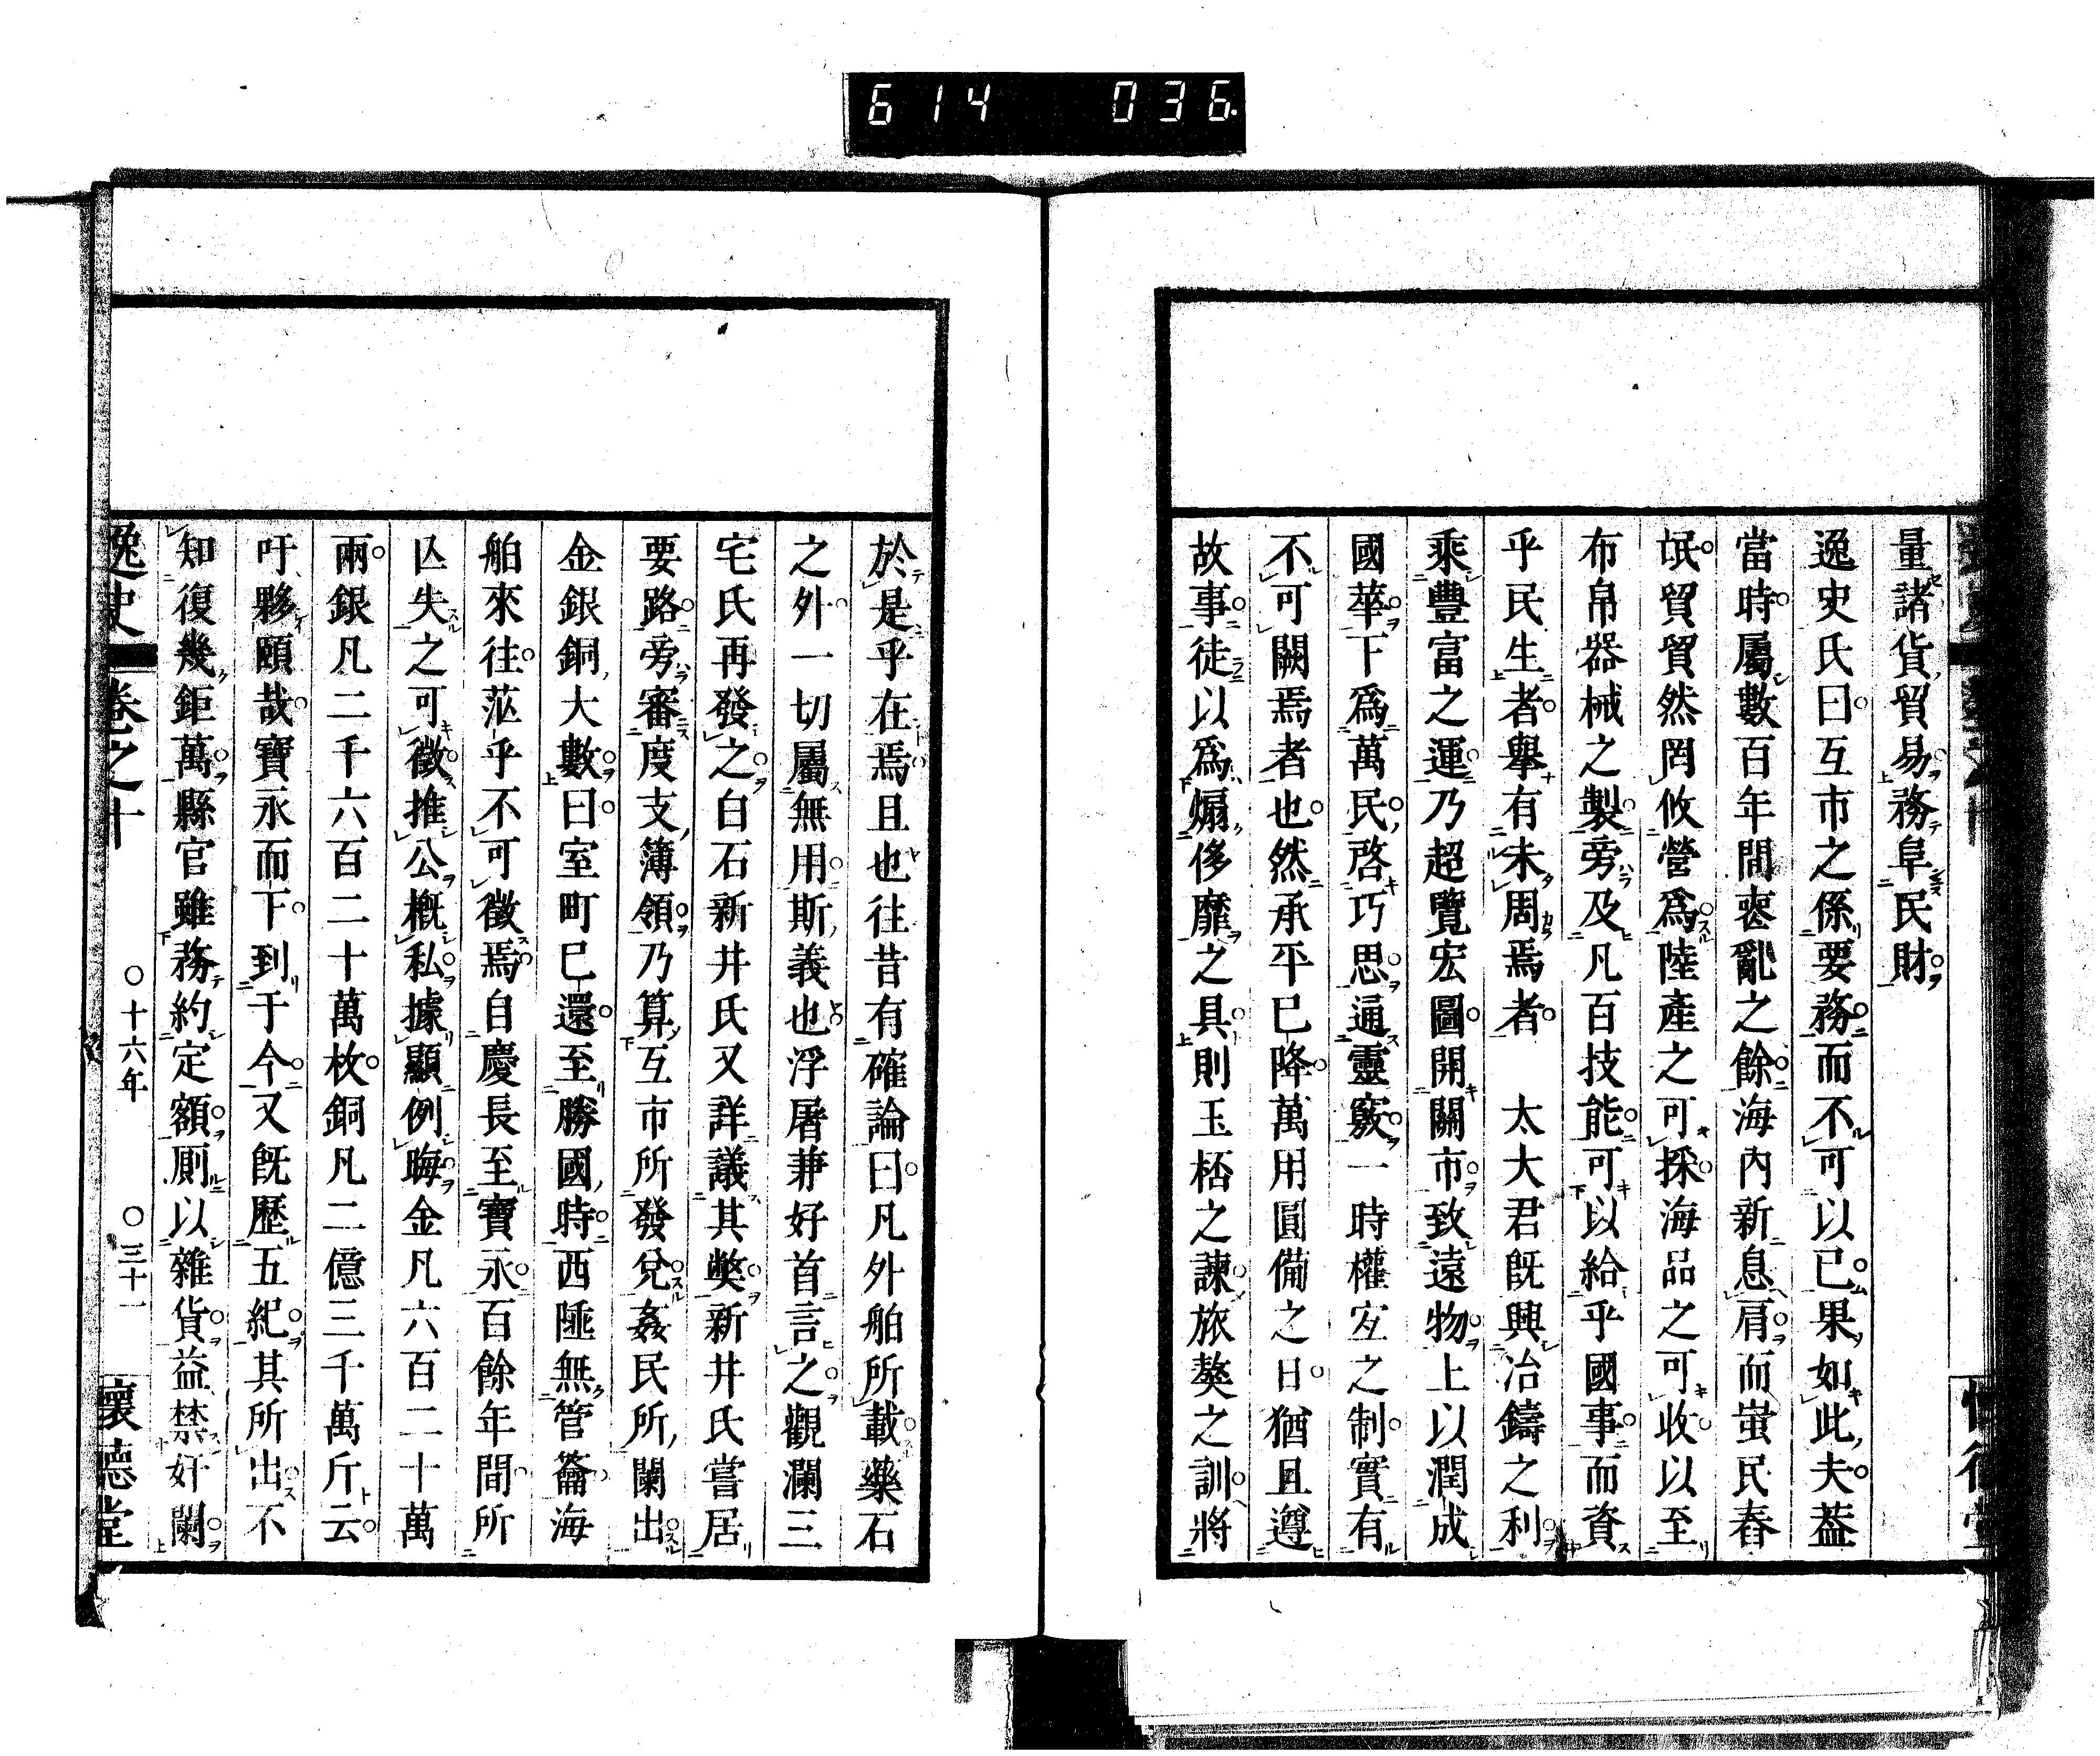 614 036
量諸貨貿易務阜民財
逸史氏曰互市之係要務而不可以已果如此夫葢
當時屬數百年間喪亂之餘海内新息肩而蚩民舂
氓貿貿然罔攸營爲陸產之可採海品之可收以至
布帛器械之製旁及凡百技能可以給乎國事而資
乎民生者舉有未周焉者 太大君既興冶鑄之利
乘豐富之運乃超覽宏圖開關市致遠物上以潤成
國華下爲萬民啓巧思通靈竅一時權宐之制實有
不可闕焉者也然承平巳降萬用圓備之日猶且遵
故事徒以爲煽侈靡之具則玉桮之諫旅獒之訓將
於是乎在焉且也往昔有確論曰凡外舶所載藥石
之外一切屬無用斯義也浮屠兼好首言之觀瀾三
宅氏再發之白石新井氏又詳議其獘新井氏嘗居
要路旁審度支簿領乃算互市所發兌姦民所闌出
金銀銅大數曰室町巳還至勝國時西陲無管籥海
舶來往茫乎不可徵焉自慶長至寶永百餘年間所
亾失之可徵推公概私據顯例晦金凡六百二十萬
兩銀凡二千六百二十萬枚銅凡二億三千萬斤云
吁夥頤哉寶永而下到于今又既歷五紀其所出不
知復幾鉅萬縣官雖務約定額厠以雜貨益禁奸闌
逸史 卷之十 ○十六年 ○三十一 懷德堂